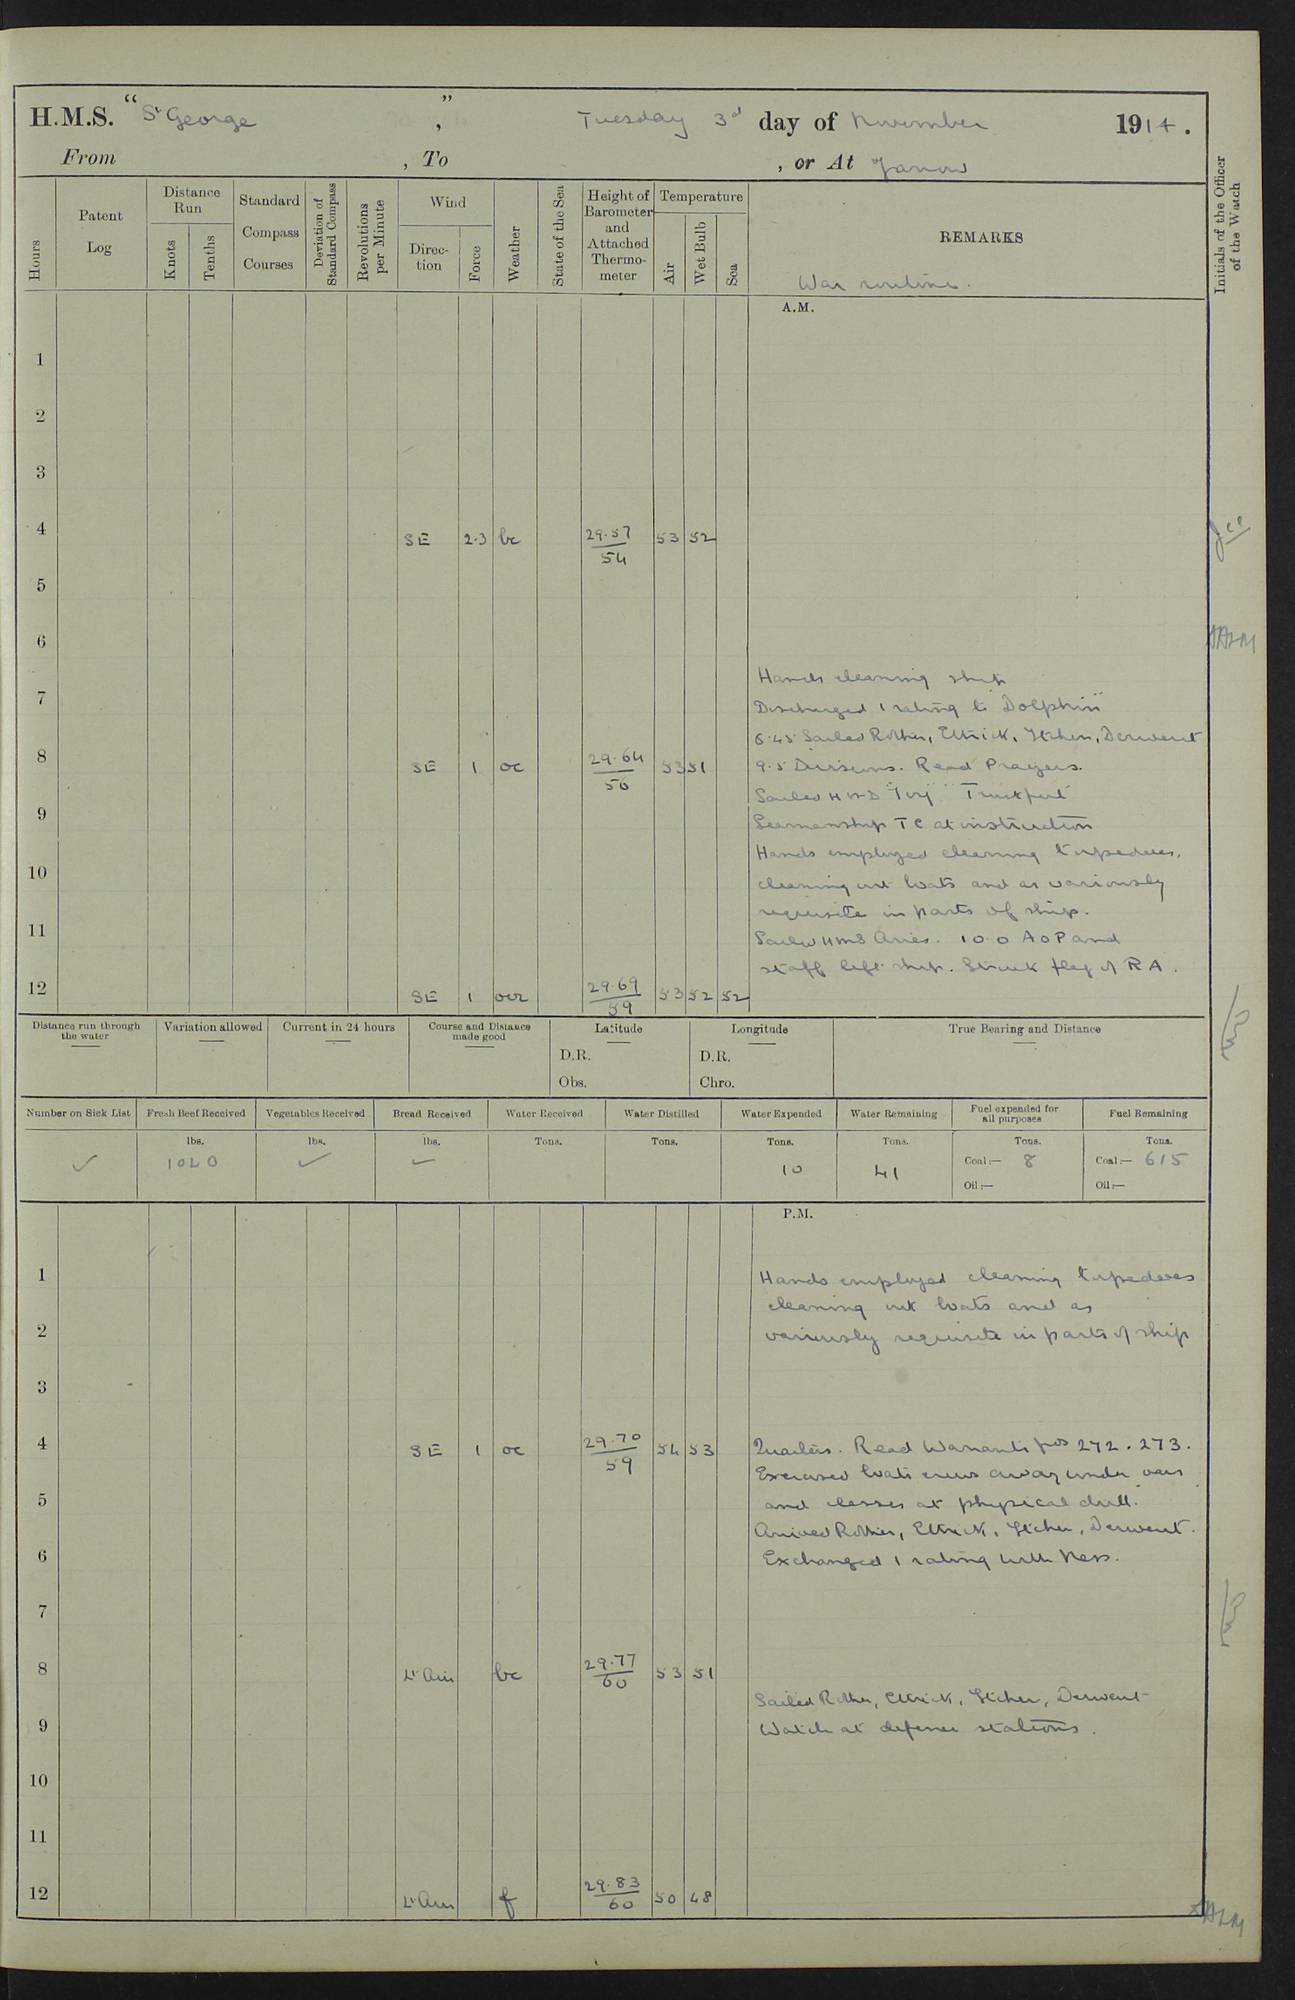 H.M.S. "St George", Tuesday 3d day of November 1914.
From , To , or At Yarrow
Hours
Patent Log
Distance Run
Knots
Tenths
Standard Compass Courses
Deviation of Standard Compass
Revolutions per Minute
Wind
Direction
Force
Weather
State of the Sea
Height of Barometer and Attached Thermometer
Temperature
Air
Wet Bulb
Sea
REMARKS
Initials of the Officer of the Watch
War routine.
A.M.
1
2
3
4 SE 2.3 bc 29.57/54 53 52
5
6
Hands cleaning ship
7
Discharged 1 rating to "Dolphin"
6.45 Sailed Rother, Ettrick, Itchen, Derwent
8 SE 1 oc 29.64/56 53 51
9.5 Divisions. Read Prayers.
Sailed
9
Seamanship T C at instruction
Hands employed cleaning torpedoes,
10
cleaning out boats and as variously
requisite in parts of ship.
11
Sailed HMS Aries. 10.0 A O P and
staff left ship. Struck flag of R A.
12 SE 1 29.69/59 53 52 52
Distance run through the water
Variation allowed
Current in 24 hours
Course and Distance made good
Latitude
D.R.
Obs.
Longitude
D.R.
Chro.
True Bearing and Distance
Number on Sick List
Fresh Beef Received
Vegetables Received
Bread Received
Water Received
Water Distilled
Water Expended
Water Remaining
Fuel expended for all purposes
Fuel Remaining
lbs. lbs. lbs. Tons. Tons. Tons. Tons. Tons. Tons.
✓ 1040 ✓ ✓ 10 41 Coal:— 8 Coal:— 615
Oil:— Oil:—
P.M.
1 Hands employed cleaning torpedoes
cleaning out boats and as
2 variously requisite in parts of ship
3
4 SE 1 oc 29.70/59 54 53 Quarters. Read Warrants Nos 272. 273.
Exercised boats crews away under oars
5 and classes at physical drill.
Arrived Rother, Ettrick, Itchen, Derwent.
6 Exchanged 1 rating with Ness.
7
8 Lt Airs bc 29.77/60 53 51
Sailed Rother, Ettrick, Itchen, Derwent
9 Watch at defence stations.
10
11
12 Lt Airs f 29.83/60 50 48